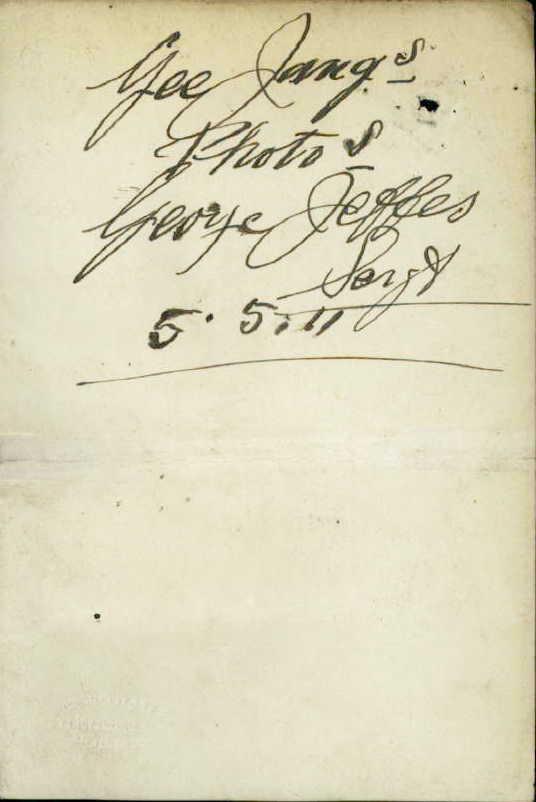 Gee Jang s
Photo s
George Jeffes
Sergt
5. 5. 11